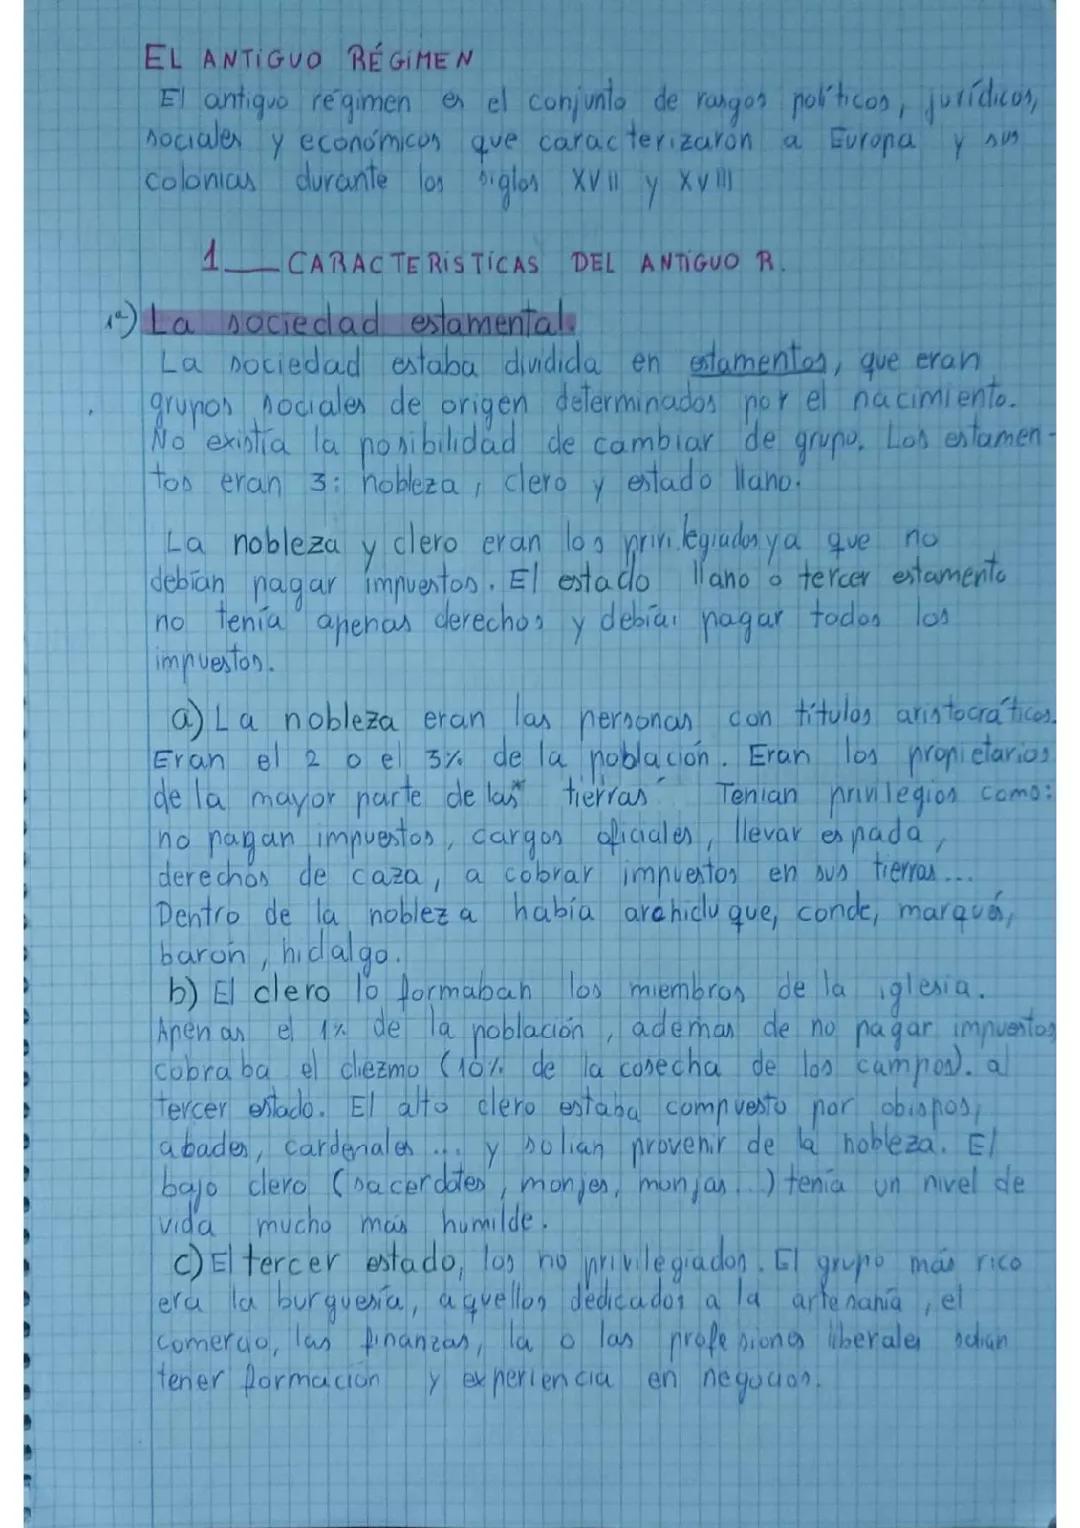 EL ANTIGUO RÉGIMEN
El antiguo régimen es el conjunto de rasgos políticos, jurídicos,
sociales y económicos que caracterizaron a Europa y sus
colonias durante los siglos XVII y XVIII
1 CARACTERISTICAS DEL ANTIGUO R.
1º) La sociedad estamental.
La sociedad estaba dividida en estamentos, que eran
grupos sociales de origen determinados por el nacimiento.
No existía la posibilidad de cambiar de grupo. Los estamen-
tos eran 3: nobleza, clero y estado llano.
La nobleza y clero eran los privilegiados ya que no
debían pagar impuestos. El estado llano o tercer estamento
no tenía apenas derechos y debían pagar todos los
impuestos.
a) La nobleza eran las personas con títulos aristocráticos.
Eran el 2 o el 3% de la población. Eran los propietarios
de la mayor parte de las tierras Tenian privilegios como:
no pagan impuestos, cargos oficiales, llevar espada,
derechos de caza, a cobrar impuestos en sus tierras...
Dentro de la nobleza había archiduque, conde, marqués,
barón, hidalgo.
b) El clero lo formaban los miembros de la iglesia.
Apenas el 1% de la población, ademas de no pagar impuestos
cobraba el diezmo (10% de la cosecha de los campos). al
tercer estado. El alto clero estaba compuesto por obispos,
abades, cardenales ... y solian provenir de la nobleza. El
bajo clero (sacerdotes, monjes, monjas...) tenía un nivel de
vida mucho más humilde.
c) El tercer estado, los no privilegiados. El grupo más rico
era la burguesía, aquellos dedicados a la artesanía, el
comercio, las finanzas, la o las profesiones liberales solían
tener formación y experiencia en negocios.